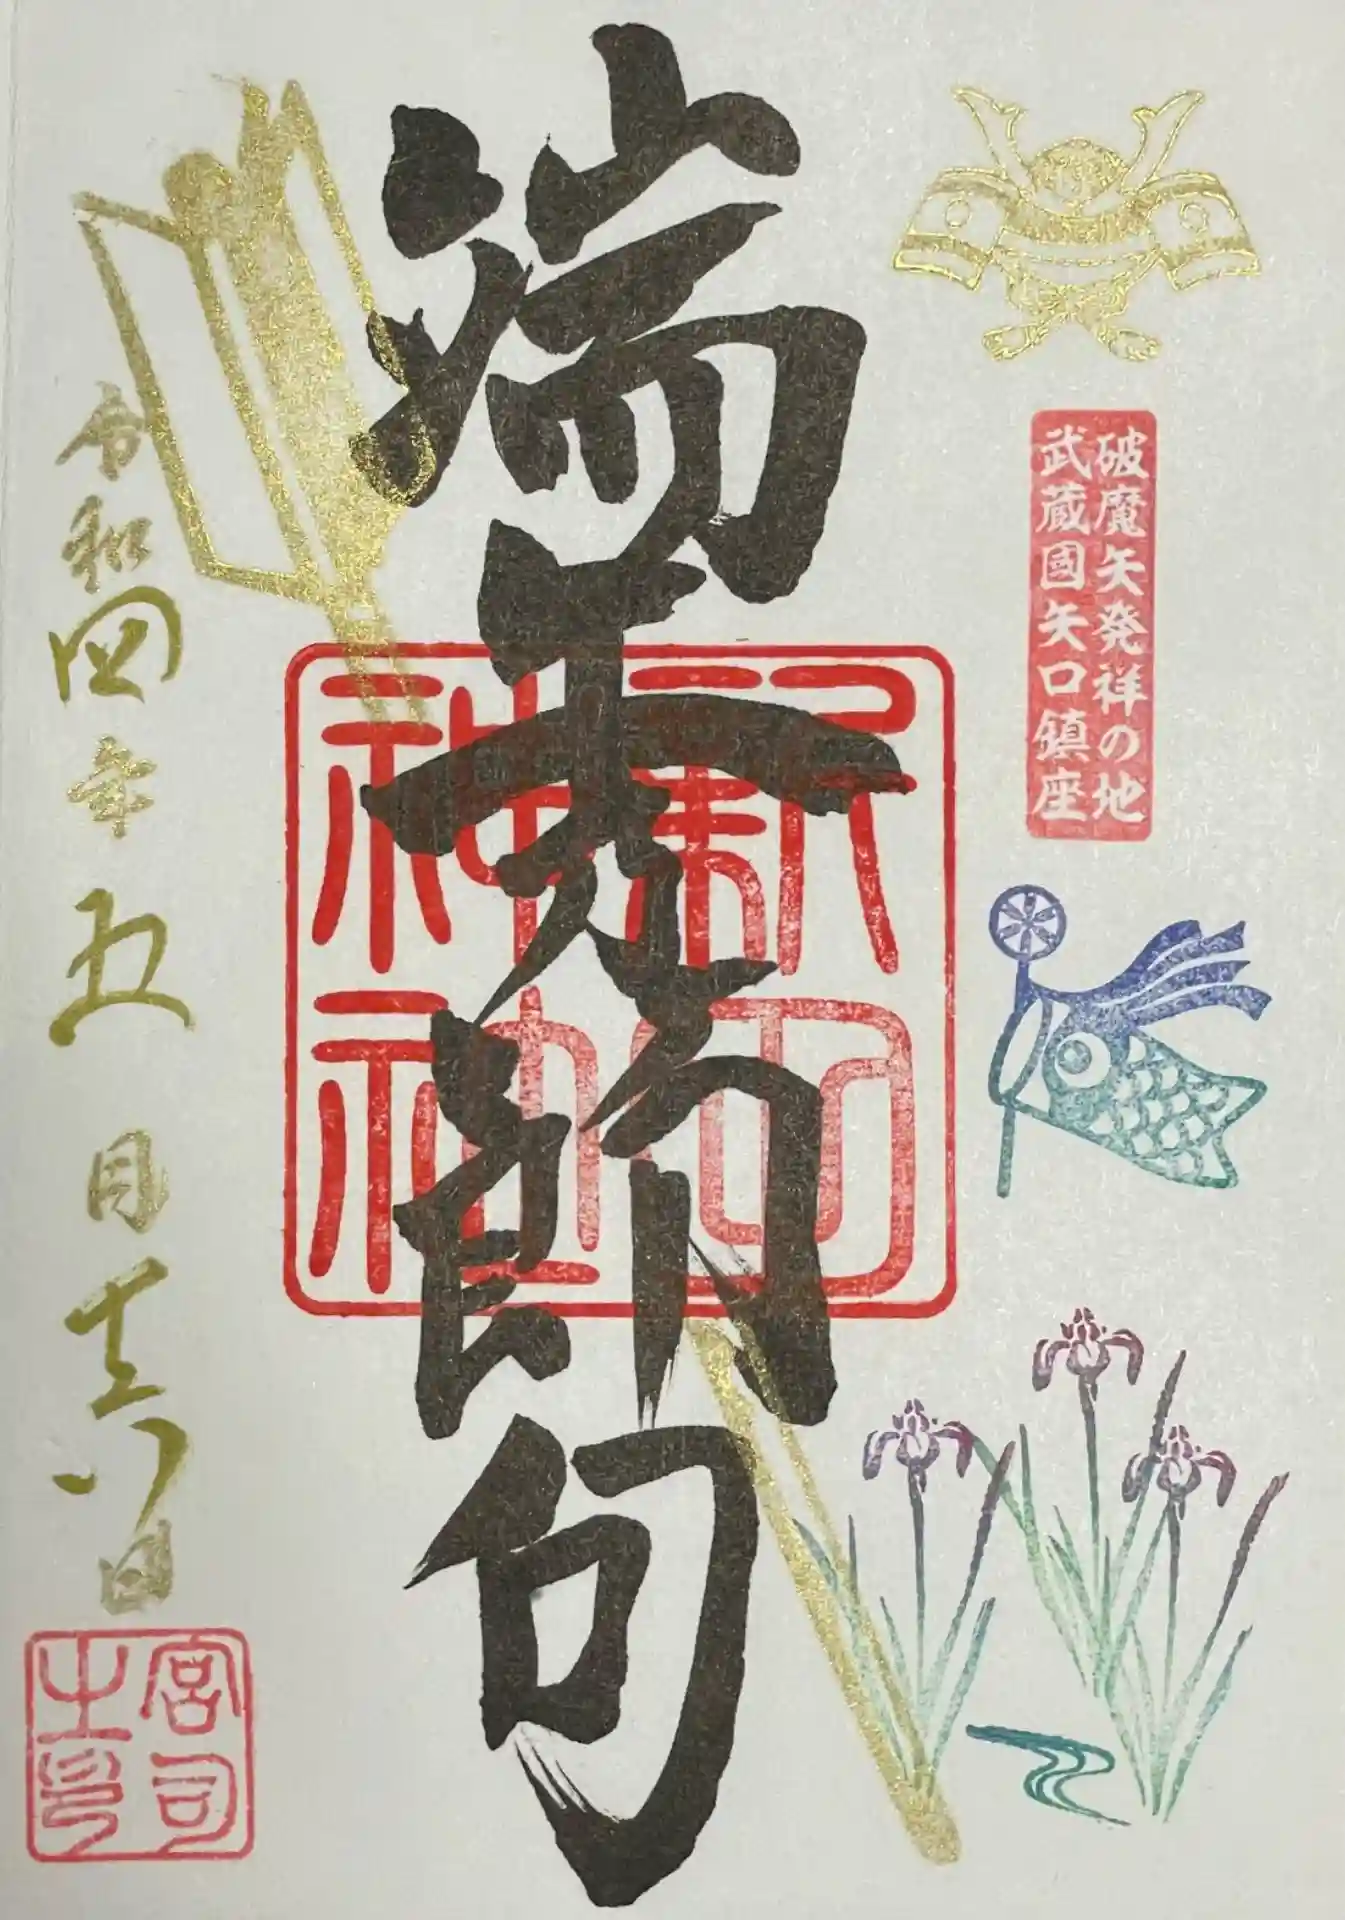 破魔矢発祥の地
武蔵國矢口鎮座
端午節句
新田
神社
令和四年五月十六日
宮司
之印